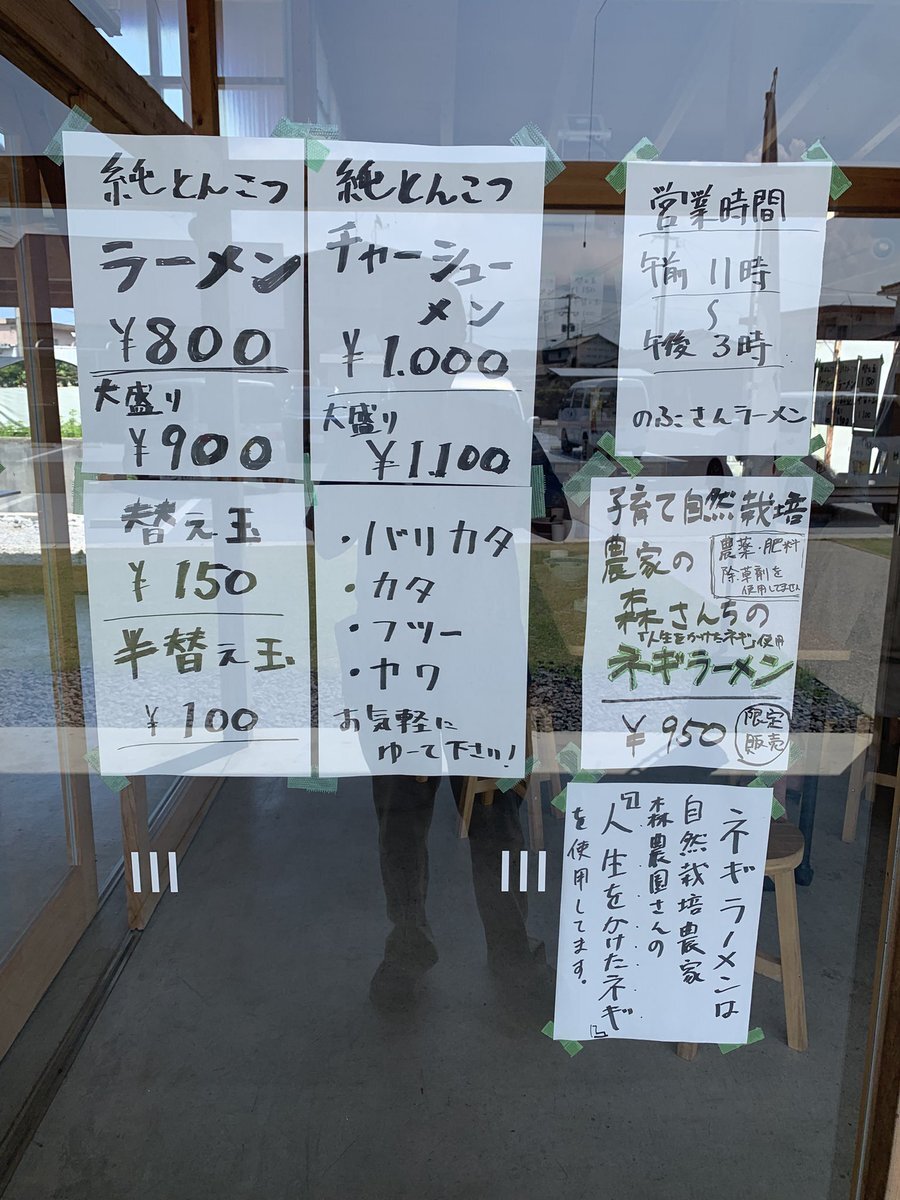 純とんこつ
ラーメン
¥800
大盛り
¥900
純とんこつ
チャーシュー
メン
¥1.000
大盛り
¥1.100
替え玉
¥150
半替え玉
¥100
・バリカタ
・カタ
・フツー
・ヤワ
お気軽に
ゆーて下さい!
営業時間
午前 11時
〜
午後 3時
のぶさんラーメン
子育て自然栽培
農家の
農薬・肥料
除草剤を
使用してません
森さんちの
「人生をかけたネギ」使用
ネギラーメン
¥950
限定
販売
ネギラーメンは
自然栽培農家
森農園さんの
『人生をかけたネギ』
を使用してます。